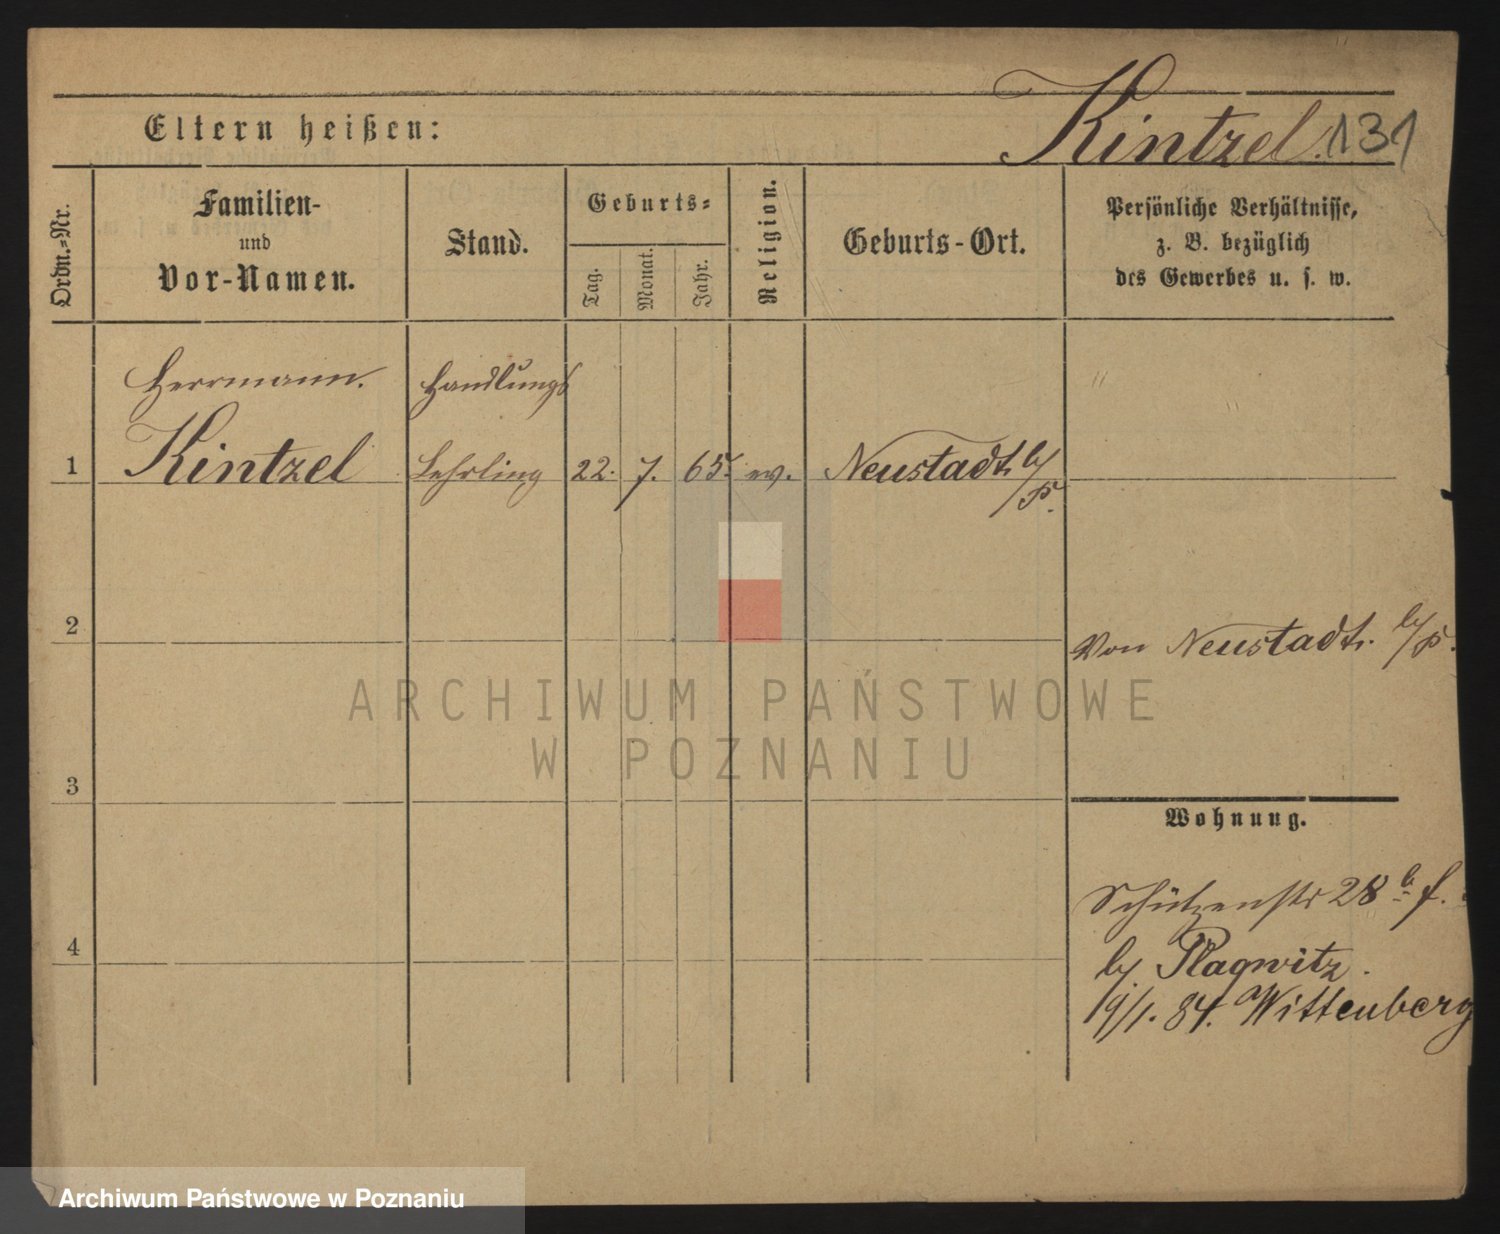 Eltern heißen:
Kintzel. 131
Ordn.=Nr.
Familien-
und
Vor-Namen.
Stand.
Geburts=
Tag.
Monat.
Jahr.
Religion.
Geburts-Ort.
Persönliche Verhältnisse,
z. B. bezüglich
des Gewerbes u. s. w.
Herrmann. Handlungs
1 Kintzel Lehrling 22. 7. 65. ev. Neustadt b/
P.
2
Von Neustadt. b/P.
ARCHIWUM PAŃSTWOWE
W POZNANIU
3
Wohnung.
Schützenstr 28 b f.
4
by Plagwitz.
19/1. 84. Wittenberg
Archiwum Państwowe w Poznaniu